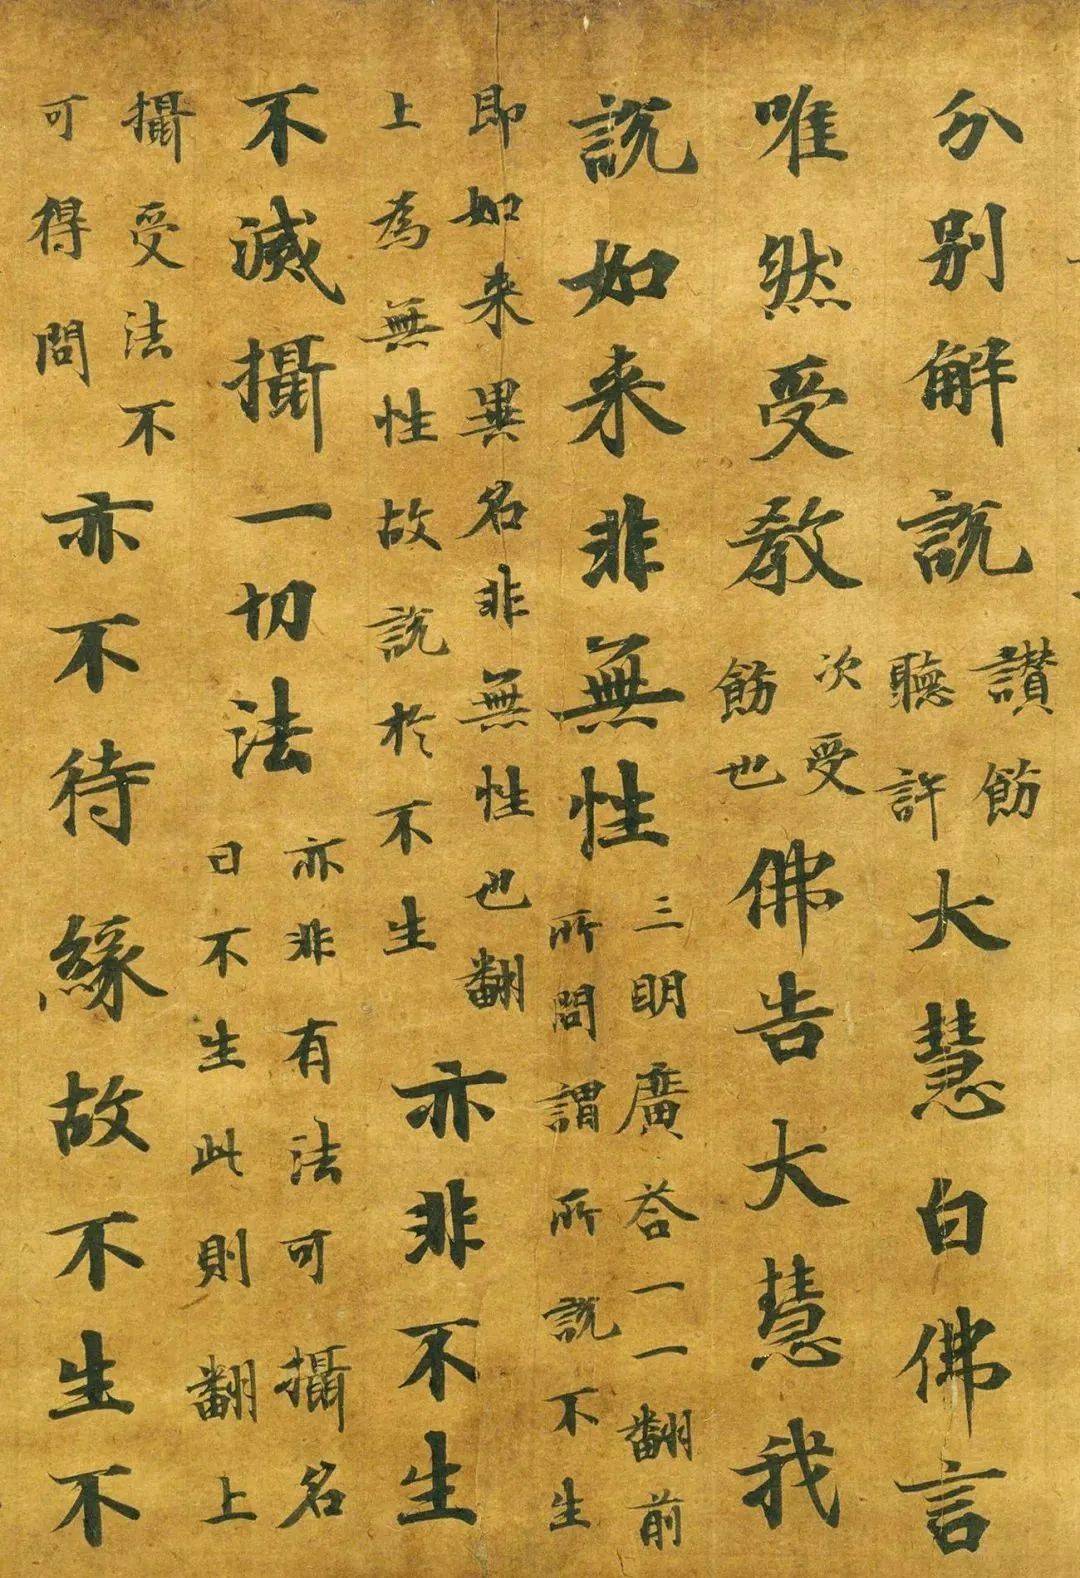 分別解說
讃飭
聽許
大慧白佛言
唯然受教
次受
飭也
佛告大慧我
說如来非無性
三明廣荅一一翻前
所問謂所說不生
即如来異名非無性也翻
上為無性故說於不生
亦非不生
不滅攝一切法
亦非有法可攝名
曰不生此則翻上
攝受法不
可得問
亦不待緣故不生不